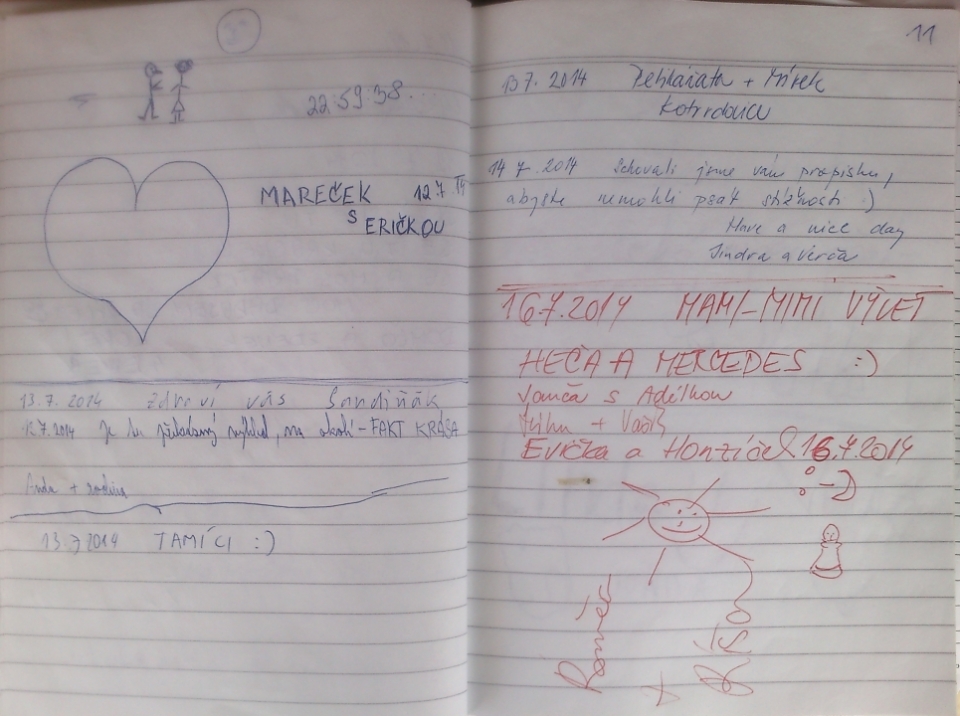 22:59:38...
MAREČEK 12.7.
S
ERIČKOU
13.7.2014 Zdraví vás Šandiňák
13.7.2014 Je tu překrásný výhled, na okolí - FAKT KRÁSA
Anda + rodina
13.7 2014 TAMÍCI :)
11
13.7. 2014 + Mirek
Kotvrdovice
14 7. 2014 Schovali jsme vám propisku,
abyste nemohli psát stížnosti :)
Have a nice day
Jindra a Verča
16.7.2014 MAMI-MIMI VÝLET
HEČA A MERCEDES :)
Janča s Adélkou
+ Vašík
Evička a Honzíček 16.7.2014
:-D
Romča
+
Ríša